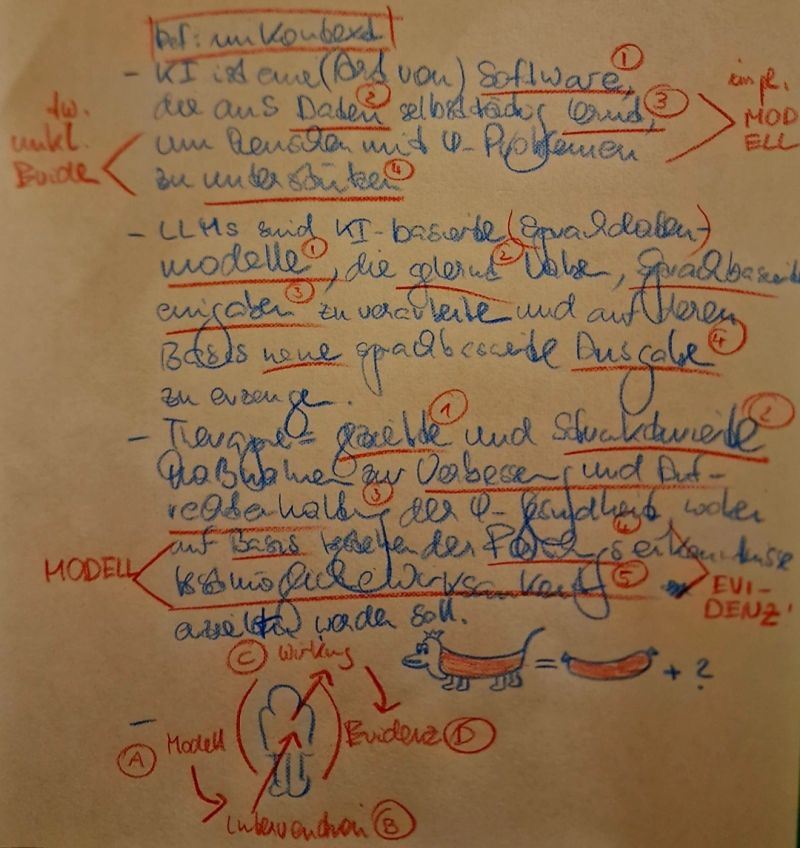 Def: im Kontext
- KI ist eine (Art von) Software, ①
die aus Daten ② selbstständig lernt, ③
um Menschen mit Ψ-Problemen
zu unterstützen ④
impl.
MOD
ELL
tw.
unkl.
- LLMs sind KI-basierte (Sprachdaten-)
modelle ①, die gelernt ② haben, sprachbasierte
eingaben ③ zu verarbeite und auf deren
Basis neue sprachbasierte Ausgabe ④
zu erzeuge.
- Therapie = gezielte ① und strukturierte ②
Maßnahmen zur Verbesserung und Auf-
rechterhaltung ③ der Ψ-Gesundheit, wobei
auf Basis bestehender Forschungserkenntnisse ④
bestmögliche Wirksamkeit ⑤
werden soll.
MODELL
EVI-
DENZ!
= + ?
Ⓒ Wirkung
- Ⓐ Modell
Evidenz Ⓓ
Intervention Ⓑ